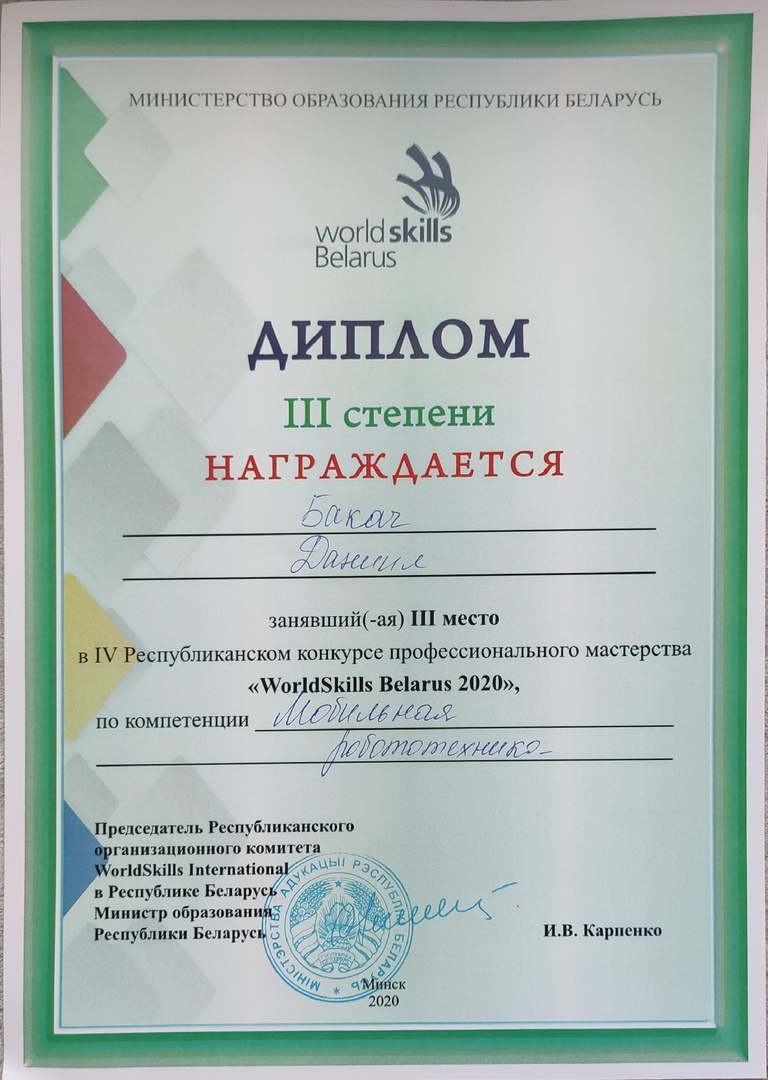 МИНИСТЕРСТВО ОБРАЗОВАНИЯ РЕСПУБЛИКИ БЕЛАРУСЬ
world skills
Belarus
ДИПЛОМ
III степени
НАГРАЖДАЕТСЯ
Бакач
Даниил
занявший(-ая) III место
в IV Республиканском конкурсе профессионального мастерства
«WorldSkills Belarus 2020»,
по компетенции Мобильная
робототехника
Председатель Республиканского
организационного комитета
WorldSkills International
в Республике Беларусь
Министр образования
Республики Беларусь
И.В. Карпенко
МІНІСТЭРСТВА АДУКАЦЫІ РЭСПУБЛІКІ БЕЛАРУСЬ
Минск
2020